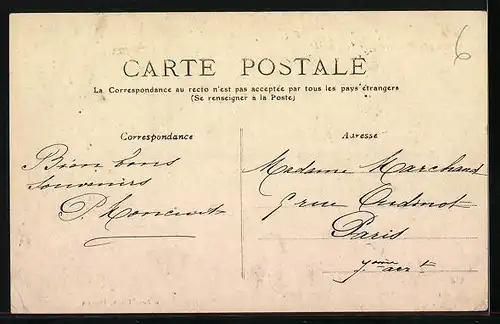 6
CARTE POSTALE
La Correspondance au recto n'est pas acceptée par tous les pays étrangers
(Se renseigner à la Poste)
Correspondance
Bien bons
souvenirs
Adresse
Madame Marchand
5 rue Oudinot
Paris
7eme arrt